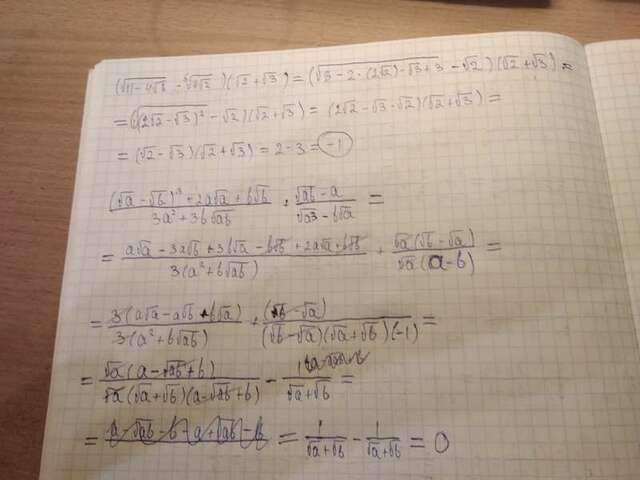 (√(11-4√6) - ⁴√4) (√2+√3) = (√(8-2·(2√2)·√3+3) - √2) (√2+√3) =
= (√(2√2-√3)² - √2)(√2+√3) = (2√2-√3-√2)(√2+√3) =
= (√2-√3)(√2+√3) = 2-3 = -1
((√a-√b)³+2a√a+b√b)/(3a²+3b√ab) + (√ab-a)/(√a³-b√a) =
= (a√a-3a√b+3b√a-b√b+2a√a+b√b)/(3(a²+b√ab)) + (√a(√b-√a))/(√a(a-b)) =
= (3(a√a-a√b+b√a))/(3(a²+b√ab)) + (√b-√a)/((√b-√a)(√a+√b)(-1)) =
= (√a(a-√ab+b))/(√a(√a+√b)(a-√ab+b)) - 1/(√a+√b) =
= = 1/(√a+√b) - 1/(√a+√b) = 0